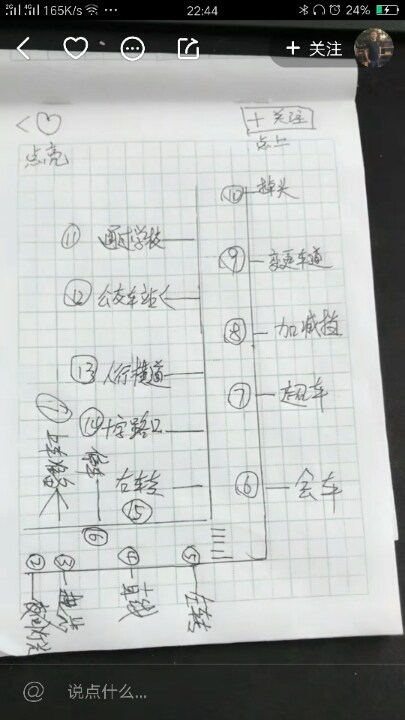 165K/s
22:44
24%
+ 关注
<
+ 关注
点亮
点上
⑩ 掉头
⑪ 通过学校
⑨ 变更车道
⑫ 公交车站
⑧ 加减挡
⑬ 人行横道
⑦ 超车
⑭ 十字路口
① 上车准备
右转
⑮
⑥ 会车
⑯ 停车
②
③ 起步
④ 直线
⑤ 左转
@ 说点什么...